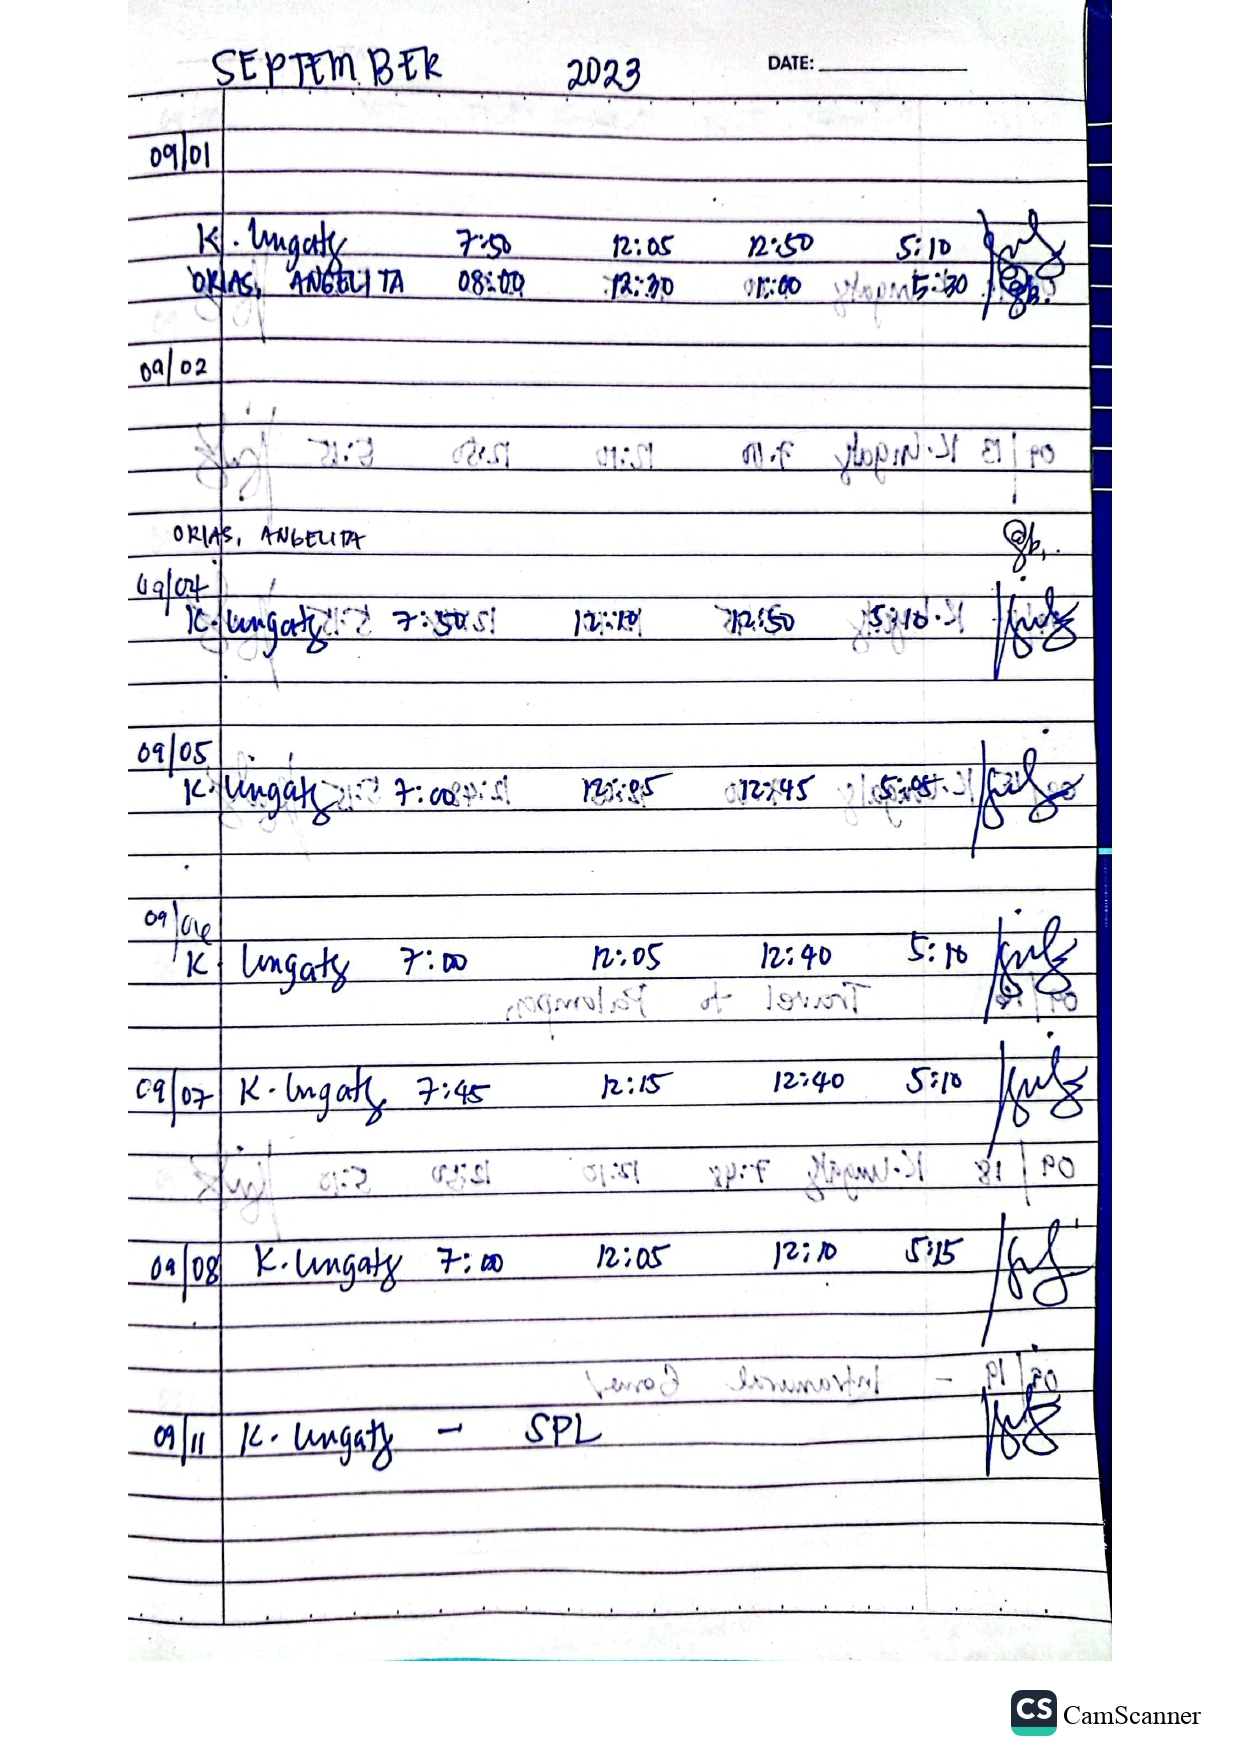 SEPTEMBER 2023 DATE:
09/01
K. Ungaty 7:50 12:05 12:50 5:10
ORIAS, ANGELITA 08:00 12:30 01:00 5:30
09/02
ORIAS, ANGELITA
09/04
K. Ungaty 7:50 12:10 12:50 5:10
09/05
K. Ungaty 7:00 12:45
09/06
K. Ungaty 7:00 12:05 12:40 5:10
09/07 K. Ungaty 7:45 12:15 12:40 5:10
09/08 K. Ungaty 7:00 12:05 12:10 5:15
09/11 K. Ungaty - SPL
CS CamScanner